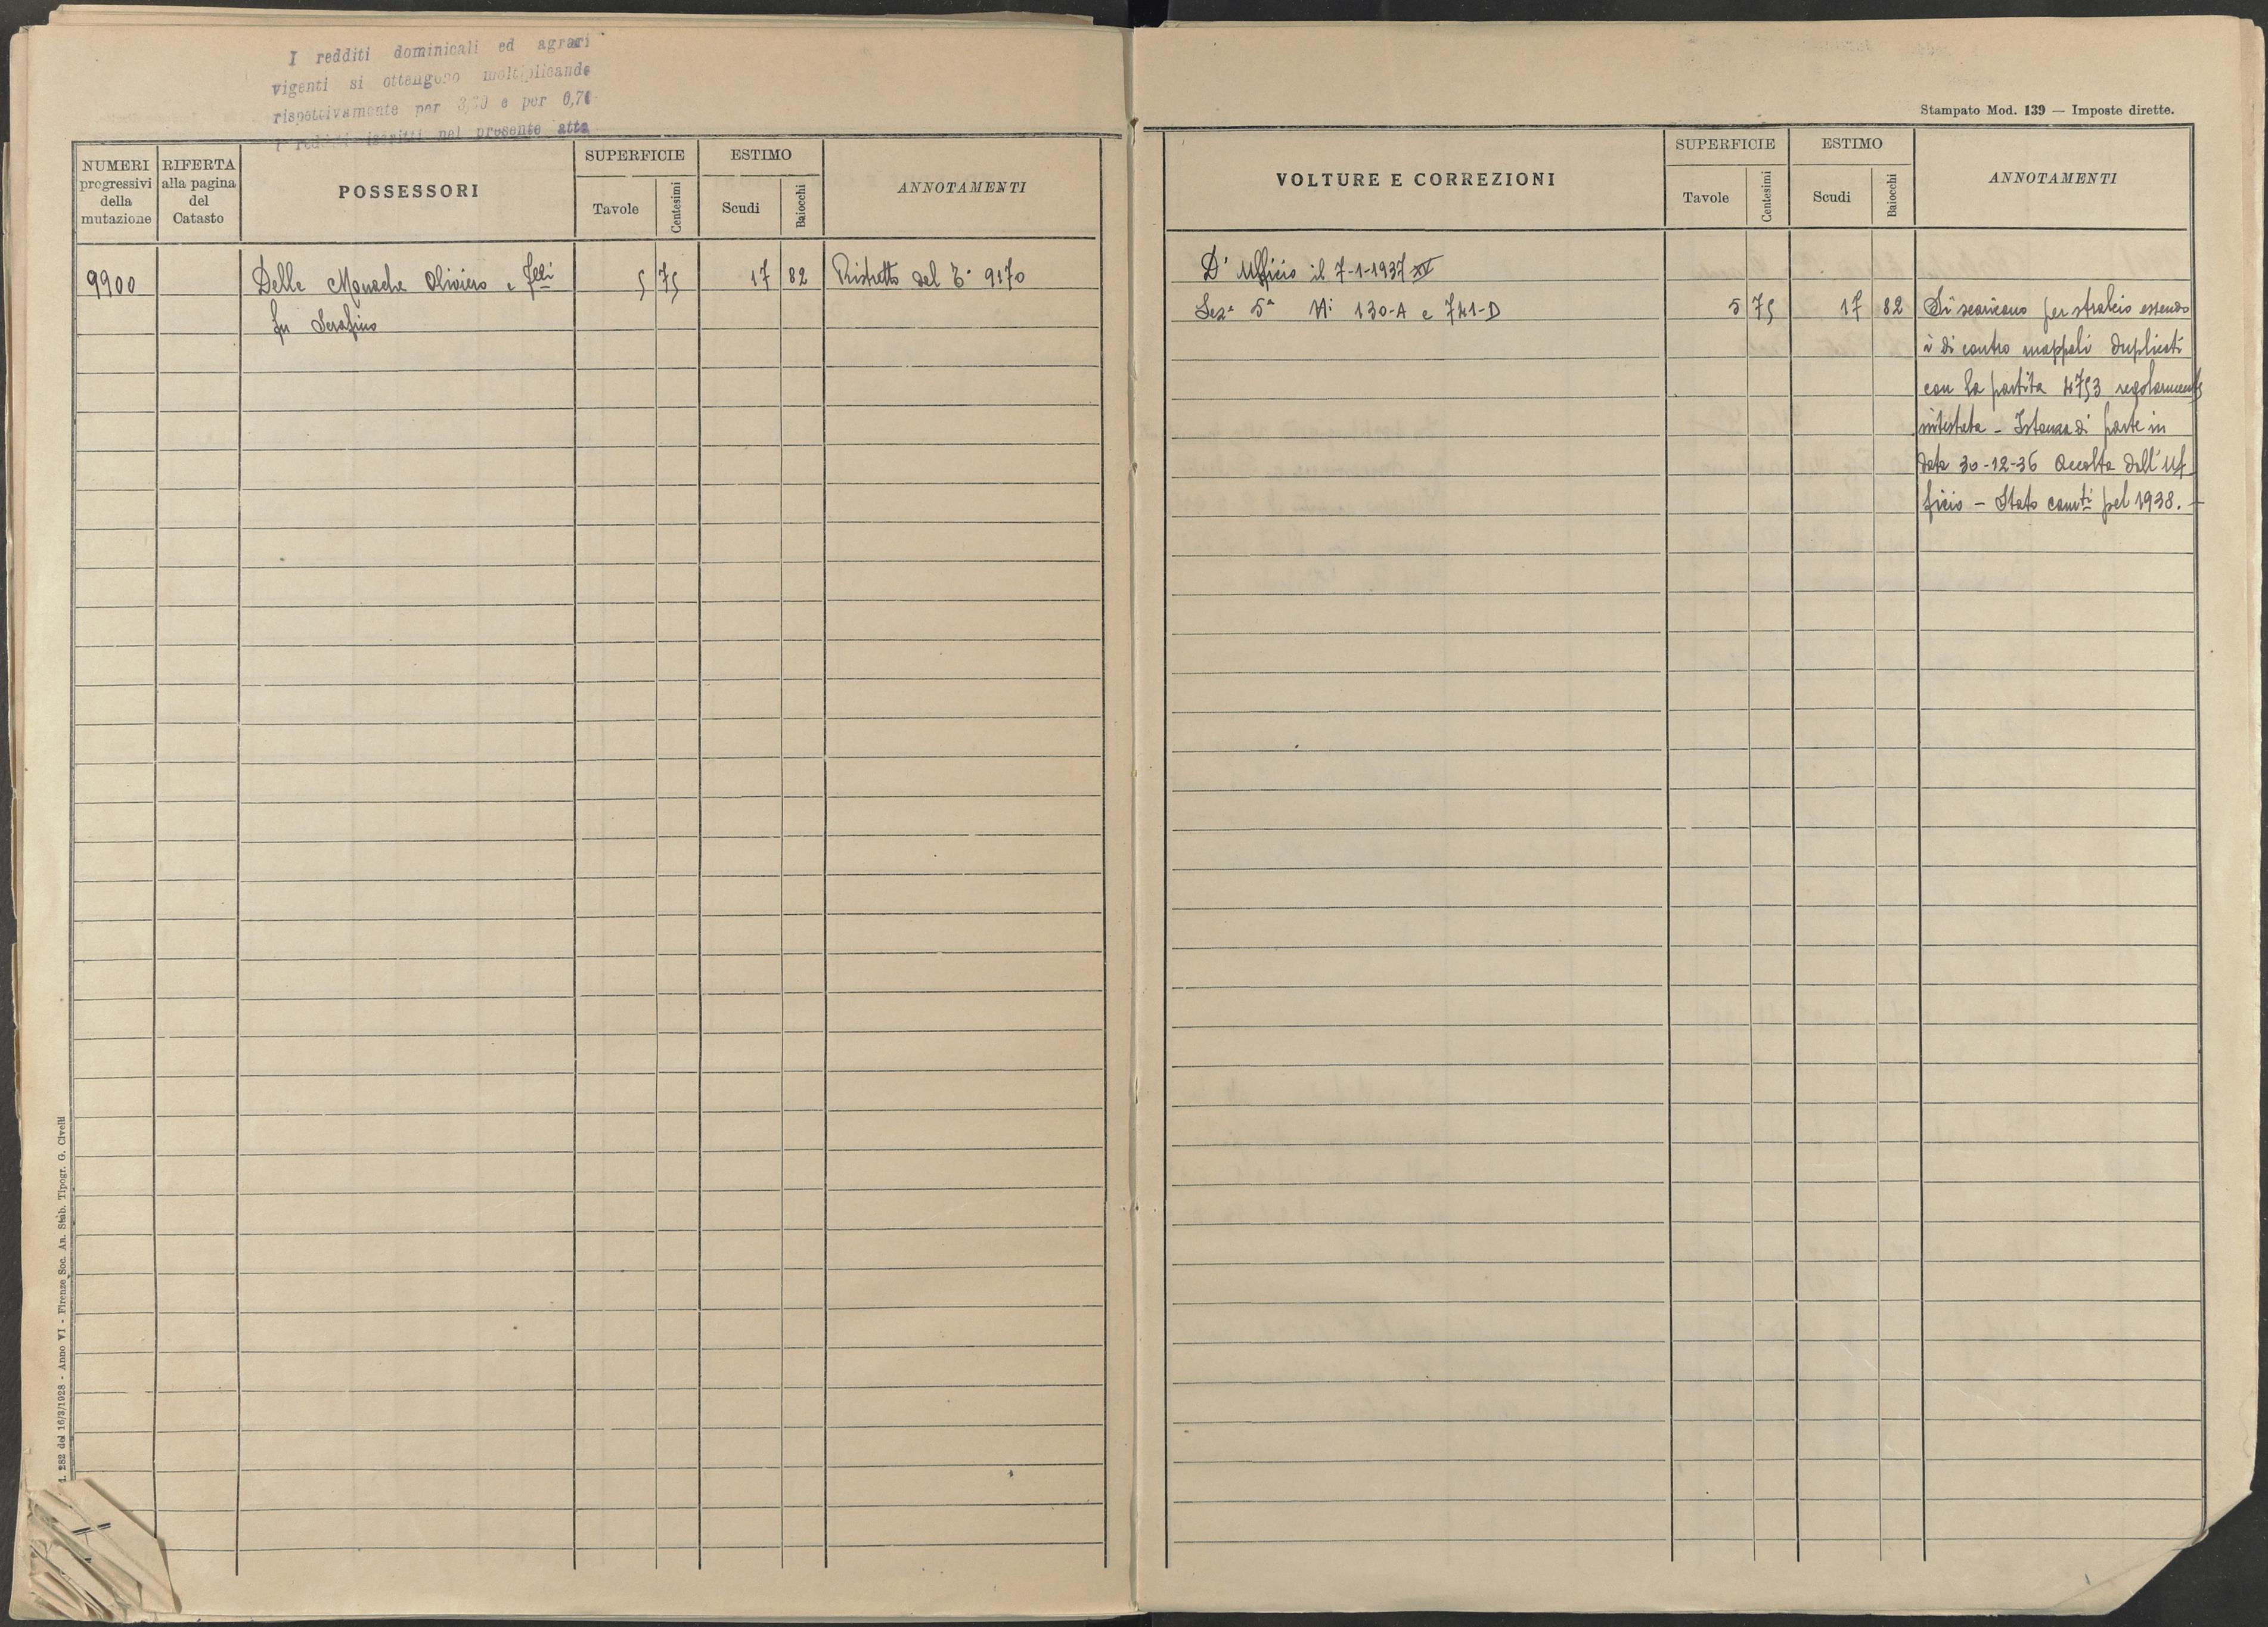 I redditi dominicali ed agrari
vigenti si ottengono moltiplicando
rispettivamente per e per 0,70
redditi iscritti nel presente atto
NUMERI
progressivi
della
mutazione
RIFERTA
alla pagina
del
Catasto
POSSESSORI
SUPERFICIE
Tavole
Centesimi
ESTIMO
Scudi
Baiocchi
ANNOTAMENTI
9900 Delle Monache Oliviero e Flli 5 75 17 82 Ristretto del 9170
fu Serafino
282 del 16/3/1928 - Anno VI - Firenze Soc. An. Stab. Tipogr. G. Civelli
Stampato Mod. 139 — Imposte dirette.
VOLTURE E CORREZIONI
SUPERFICIE
Tavole
Centesimi
ESTIMO
Scudi
Baiocchi
ANNOTAMENTI
D' Ufficio il 7-1-1937 XV
Seze 5ª Ni 130-A e 741-D 5 75 17 82 Si scaricano per stralcio essendo
i di contro mappali duplicati
con la partita 4753 regolarmente
intestata - Istanza di parte in
data 30-12-36 accolta dall'Uf
ficio - Stato camti pel 1938. -